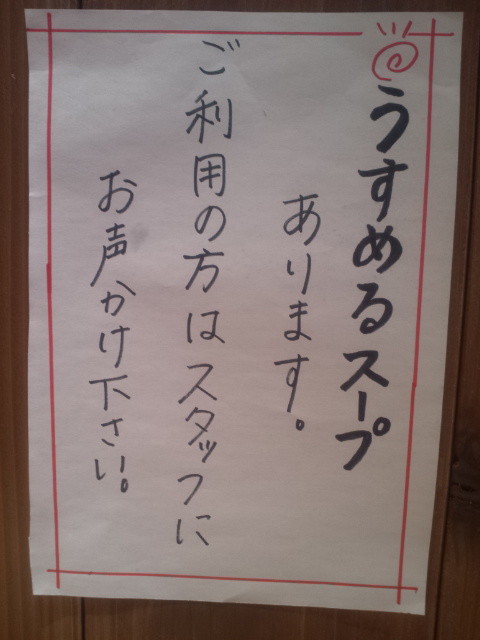 うすめるスープ
あります。
ご利用の方はスタッフに
お声かけ下さい。